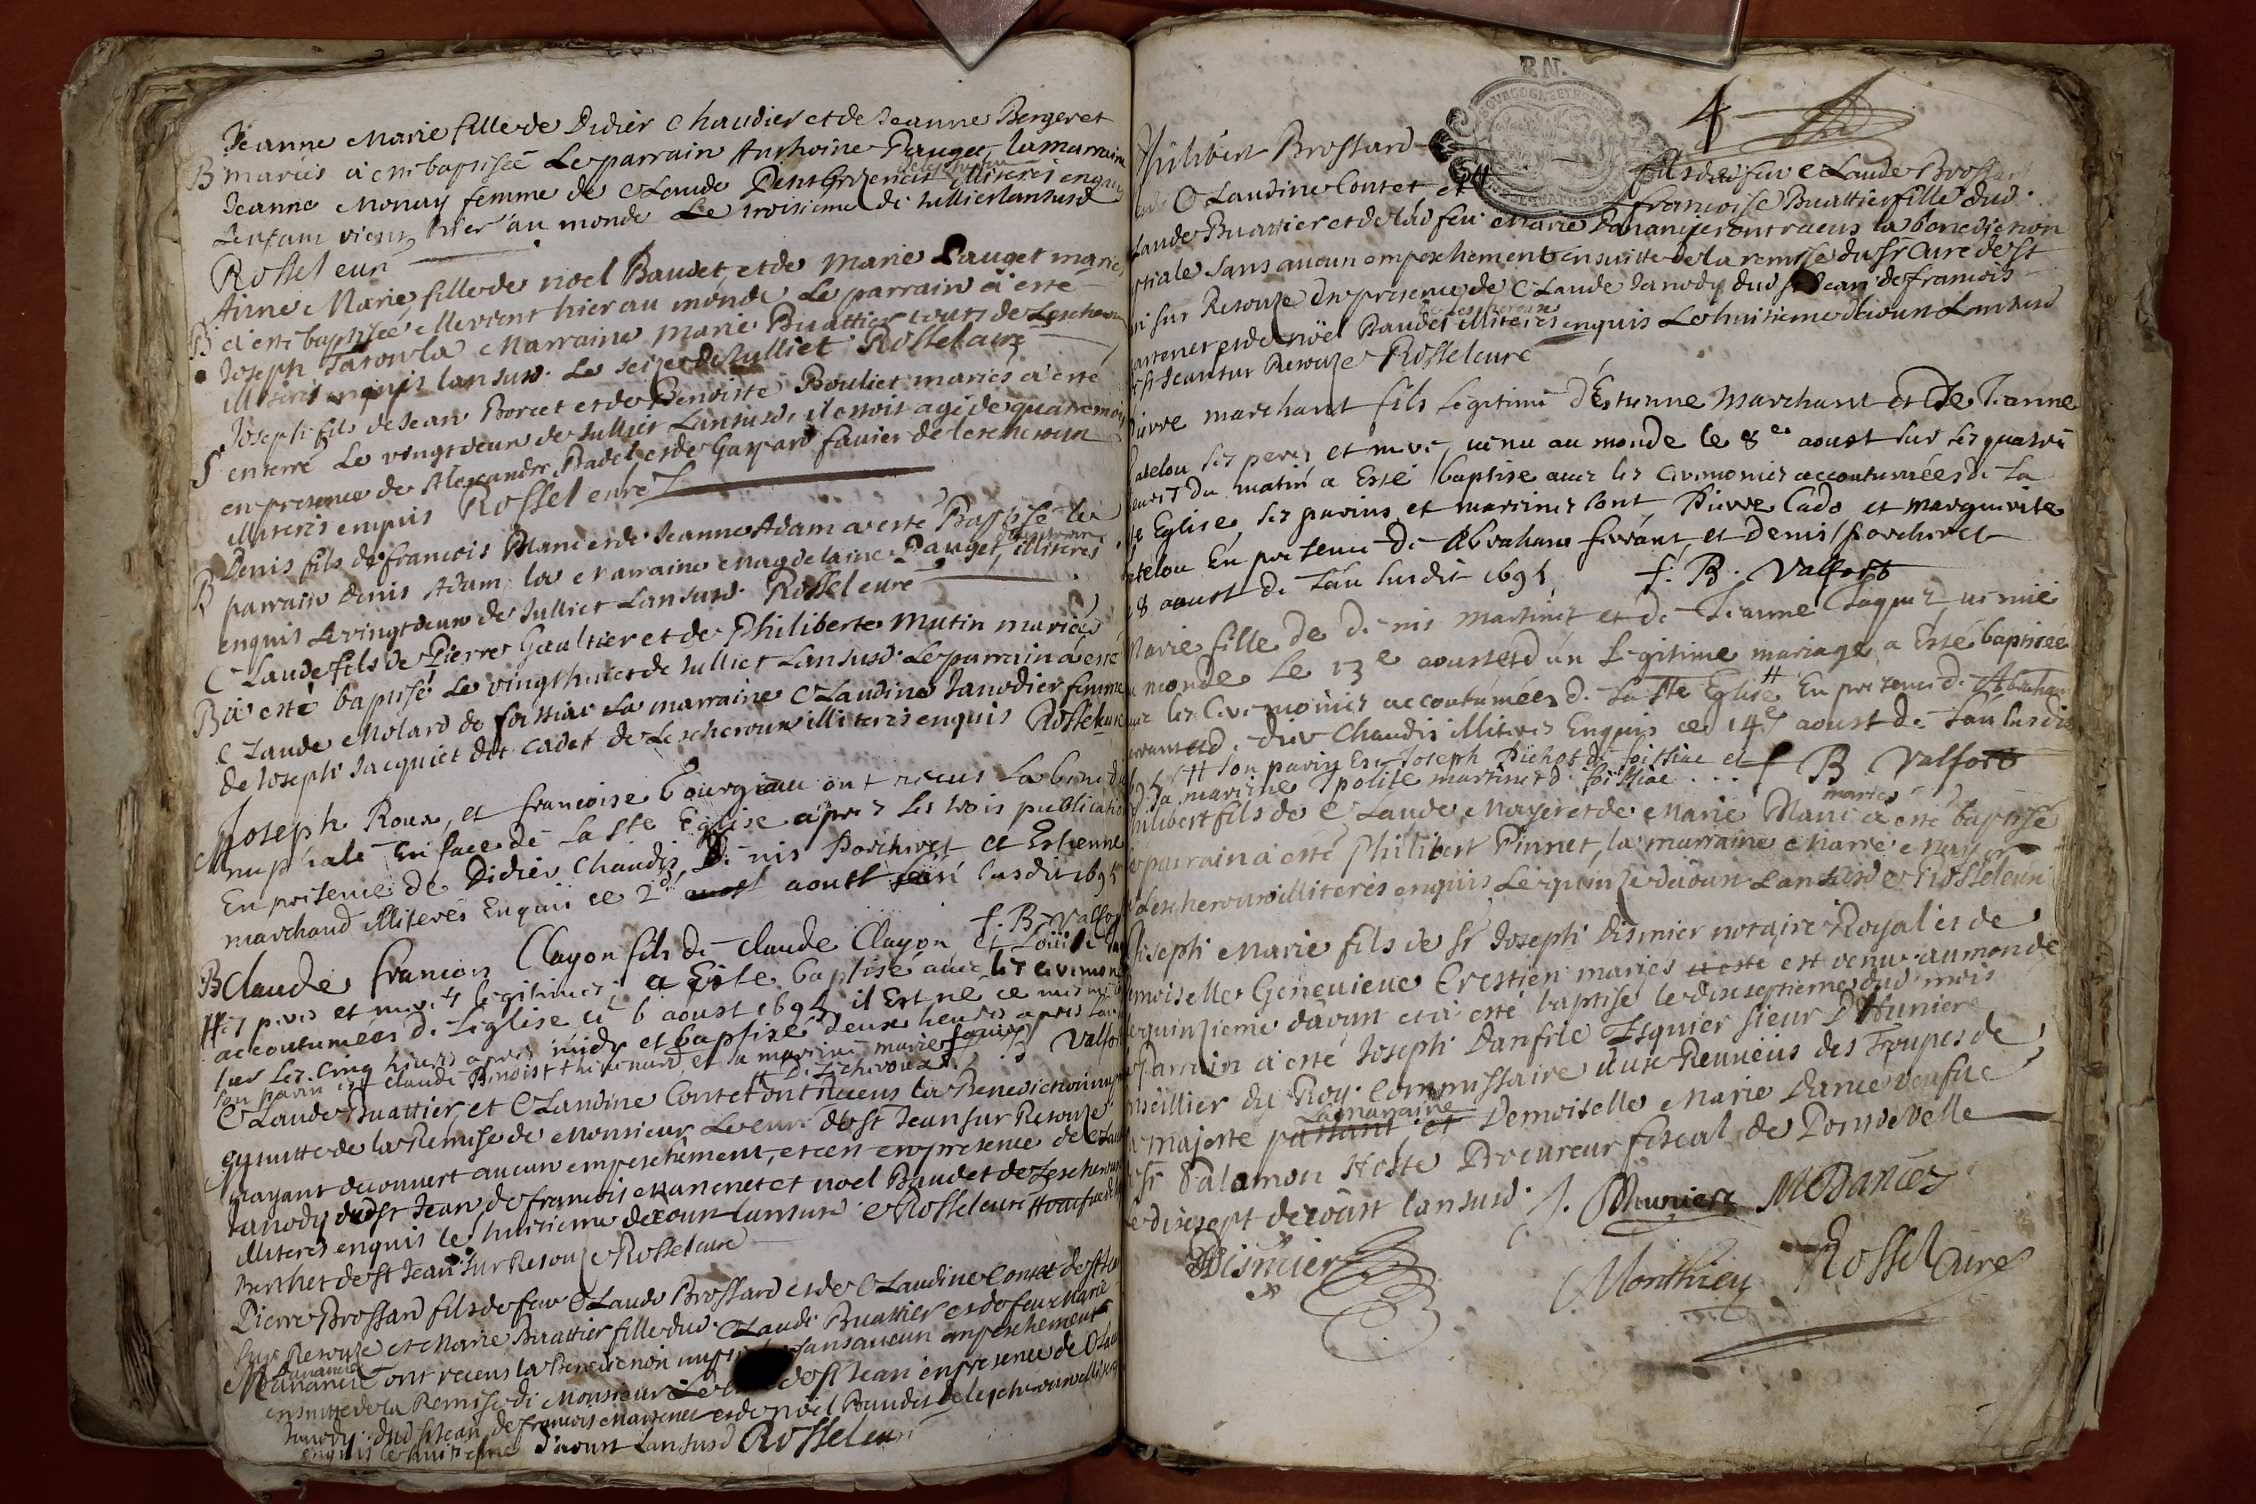 Jeanne Marie fille de Didier Chaudier et de Jeanne Bergeret
B mariés a esté baptisée Le parrain Anthoine Pauget, la marraine
Jeanne Monay femme de Claude illiterés enquis
L'enfant vient hier au monde Le troisieme de Julliet lansusd
Rossel curé
Anne Marie, fille de noel Baudet, et de Marie Pauget mariés
B a esté baptisée elle vient hier au monde Le parrain a esté
Joseph la Marraine Marie Buattier tous de Lescheroux
illiterés enquis lansusd. Le seize de Julliet Rossel curé
Joseph fils de Jean Borcet et de Benoiste Bouliet mariés a esté
S enterré Le vingt deux de Julliet Lansusd, il estoit agé de quatre mois
en presence de Alexandre Badel et de Gaspard favier de lescheroux
illiterés enquis Rossel curé
Denis fils de francois Blanc et de Jeanne Adam a esté Baptisé le
B parrain Denis Adam, la Marraine Magdelaine Pauget, illiterés
enquis Le vingt deux de Julliet Lansusd. Rossel curé
Claude fils de Pierre Gaultier et de Philiberte Mutin mariés
B a esté baptisé Le vingt huict de Julliet Lansusd. Le parrain a esté
Claude Molard de foissiac La marraine Claudine Janodier femme
de Joseph Jacquiet dit cadet de Lescheroux illiterés enquis Rossel curé
Joseph Roux, et francoise bourgeau ont receus La bened
nuptiale En face de La Ste Eglise apres Les trois publicatio
En presence de Didier Chaudis, Denis Porchiret et Estienne
marchand illiterés Enquis ce 2d aoust sudit 1695
f. B. Valfort
B Claude francois Clayon fils de Claude Clayon et Louise
ses peres et meres legitimes, a Esté baptisé avec les ceremon
accoutumées de L'eglise ce 6 aoust 1695 il Est né ce mesme
sur Les cinq heures apres midy et baptisé deux heures apres
son parin est Claude Benoist et sa marine marie
# De Lescheroux f. B Valfort
Claude Buattier, et Claudine Contet ont Receus la Benediction nup
ensuitte de la Remise de Monsieur Le curé de St Jean sur Resouze
n'ayant decouvert aucun empeschement, et ce en presence de Claude
Janody dud St Jean de francois Marenet et noel Baudet de Lescheroux
illiterés enquis le huitieme de aoust lansusd Rossel curé
Berthet de St Jean sur Resouze Rossel curé
Pierre Brossard fils de feu Claude Brossard et de Claudine Contet de St Jean
sur Resouze et Marie Buattier fille dud. Claude Buattier et de feu Marie
Danancié ont receus la Benediction nup sans aucun empeschement
ensuitte de la Remise de Monsieur Le de St Jean en presence de Claude
Janody dud St Jean de francois Marenet et de noël Baudet de lescheroux illiterés
enquis le huitieme d'aoust Lansusd Rossel curé
4
Philibert Brossard fils de feu Claude Brossard
Claudine Contet et francoise Buattier fille dud.
Claude Buattier et de lad feu Marie Danancier ont receus la benediction
sans aucun empeschement ensuitte de la remise du Sr Curé de St
sur Resouze En presence de Claude Janody dud St Jean de francois
de Lescheroux
et de noël Baudet illiterés enquis Le huitieme d'aoust Lansusd
St Jean sur Resouze Rossel curé
Pierre marchant fils Legitime d'Estienne Marchant et De Jeanne
ses peres et mere, venu au monde le 8e aoust sur les quatre
heures du matin a Esté baptise avec les ceremonies accoutumées de La
Ste Eglise, ses parins et marrines sont Pierre Cado et marguerite
En presence de Abraham ferrant, et Denis Porchiret
8 aoust de L'an susdit 1695 f. B. Valfort
Marie fille de Denis Martinet et de Jeanne Jaquet, venüe
au monde Le 13e aoust et d'un Legitime mariage, a Esté baptisée
avec les Ceremonies accoutumées de La Ste Eglise # En presence de Abraham
ferrant et de Didier Chaudis illiterés Enquis ce 14e aoust de L'an susdit
# Son parin Est Joseph Pichot de foissiac et f B Valfort
sa marine Ipolite martinet de foissiac
mariés
Philibert fils de Claude Mayer et de Marie Blanc a esté baptisé
Le parrain a esté Philibert Pinnet, la marraine Marie Mayer
Lescheroux illiterés enquis Le quinze d'aoust Lansusd Rossel curé
Joseph Marie fils de Sr Joseph Dismier notaire Royal et de
Demoiselle Genevieve Crestien mariés et esté est venu au monde
Le quinzieme d'aoust et a esté baptisé le dix septieme dud mois
Le Parrain a esté Joseph Danfrie Esquier sieur D'Hunieres
Conseillier du Roy Commissaire Reveües des Troupes de
La marraine
sa majesté partant et Demoiselle Marie Dance veufve
de Sr Salamon Hoste Procureur fiscal de Pomdevelle
Le dixsept de aoust lansusd. J. Dhunieres M Dances
Dismier Monthieu Rossel Curé